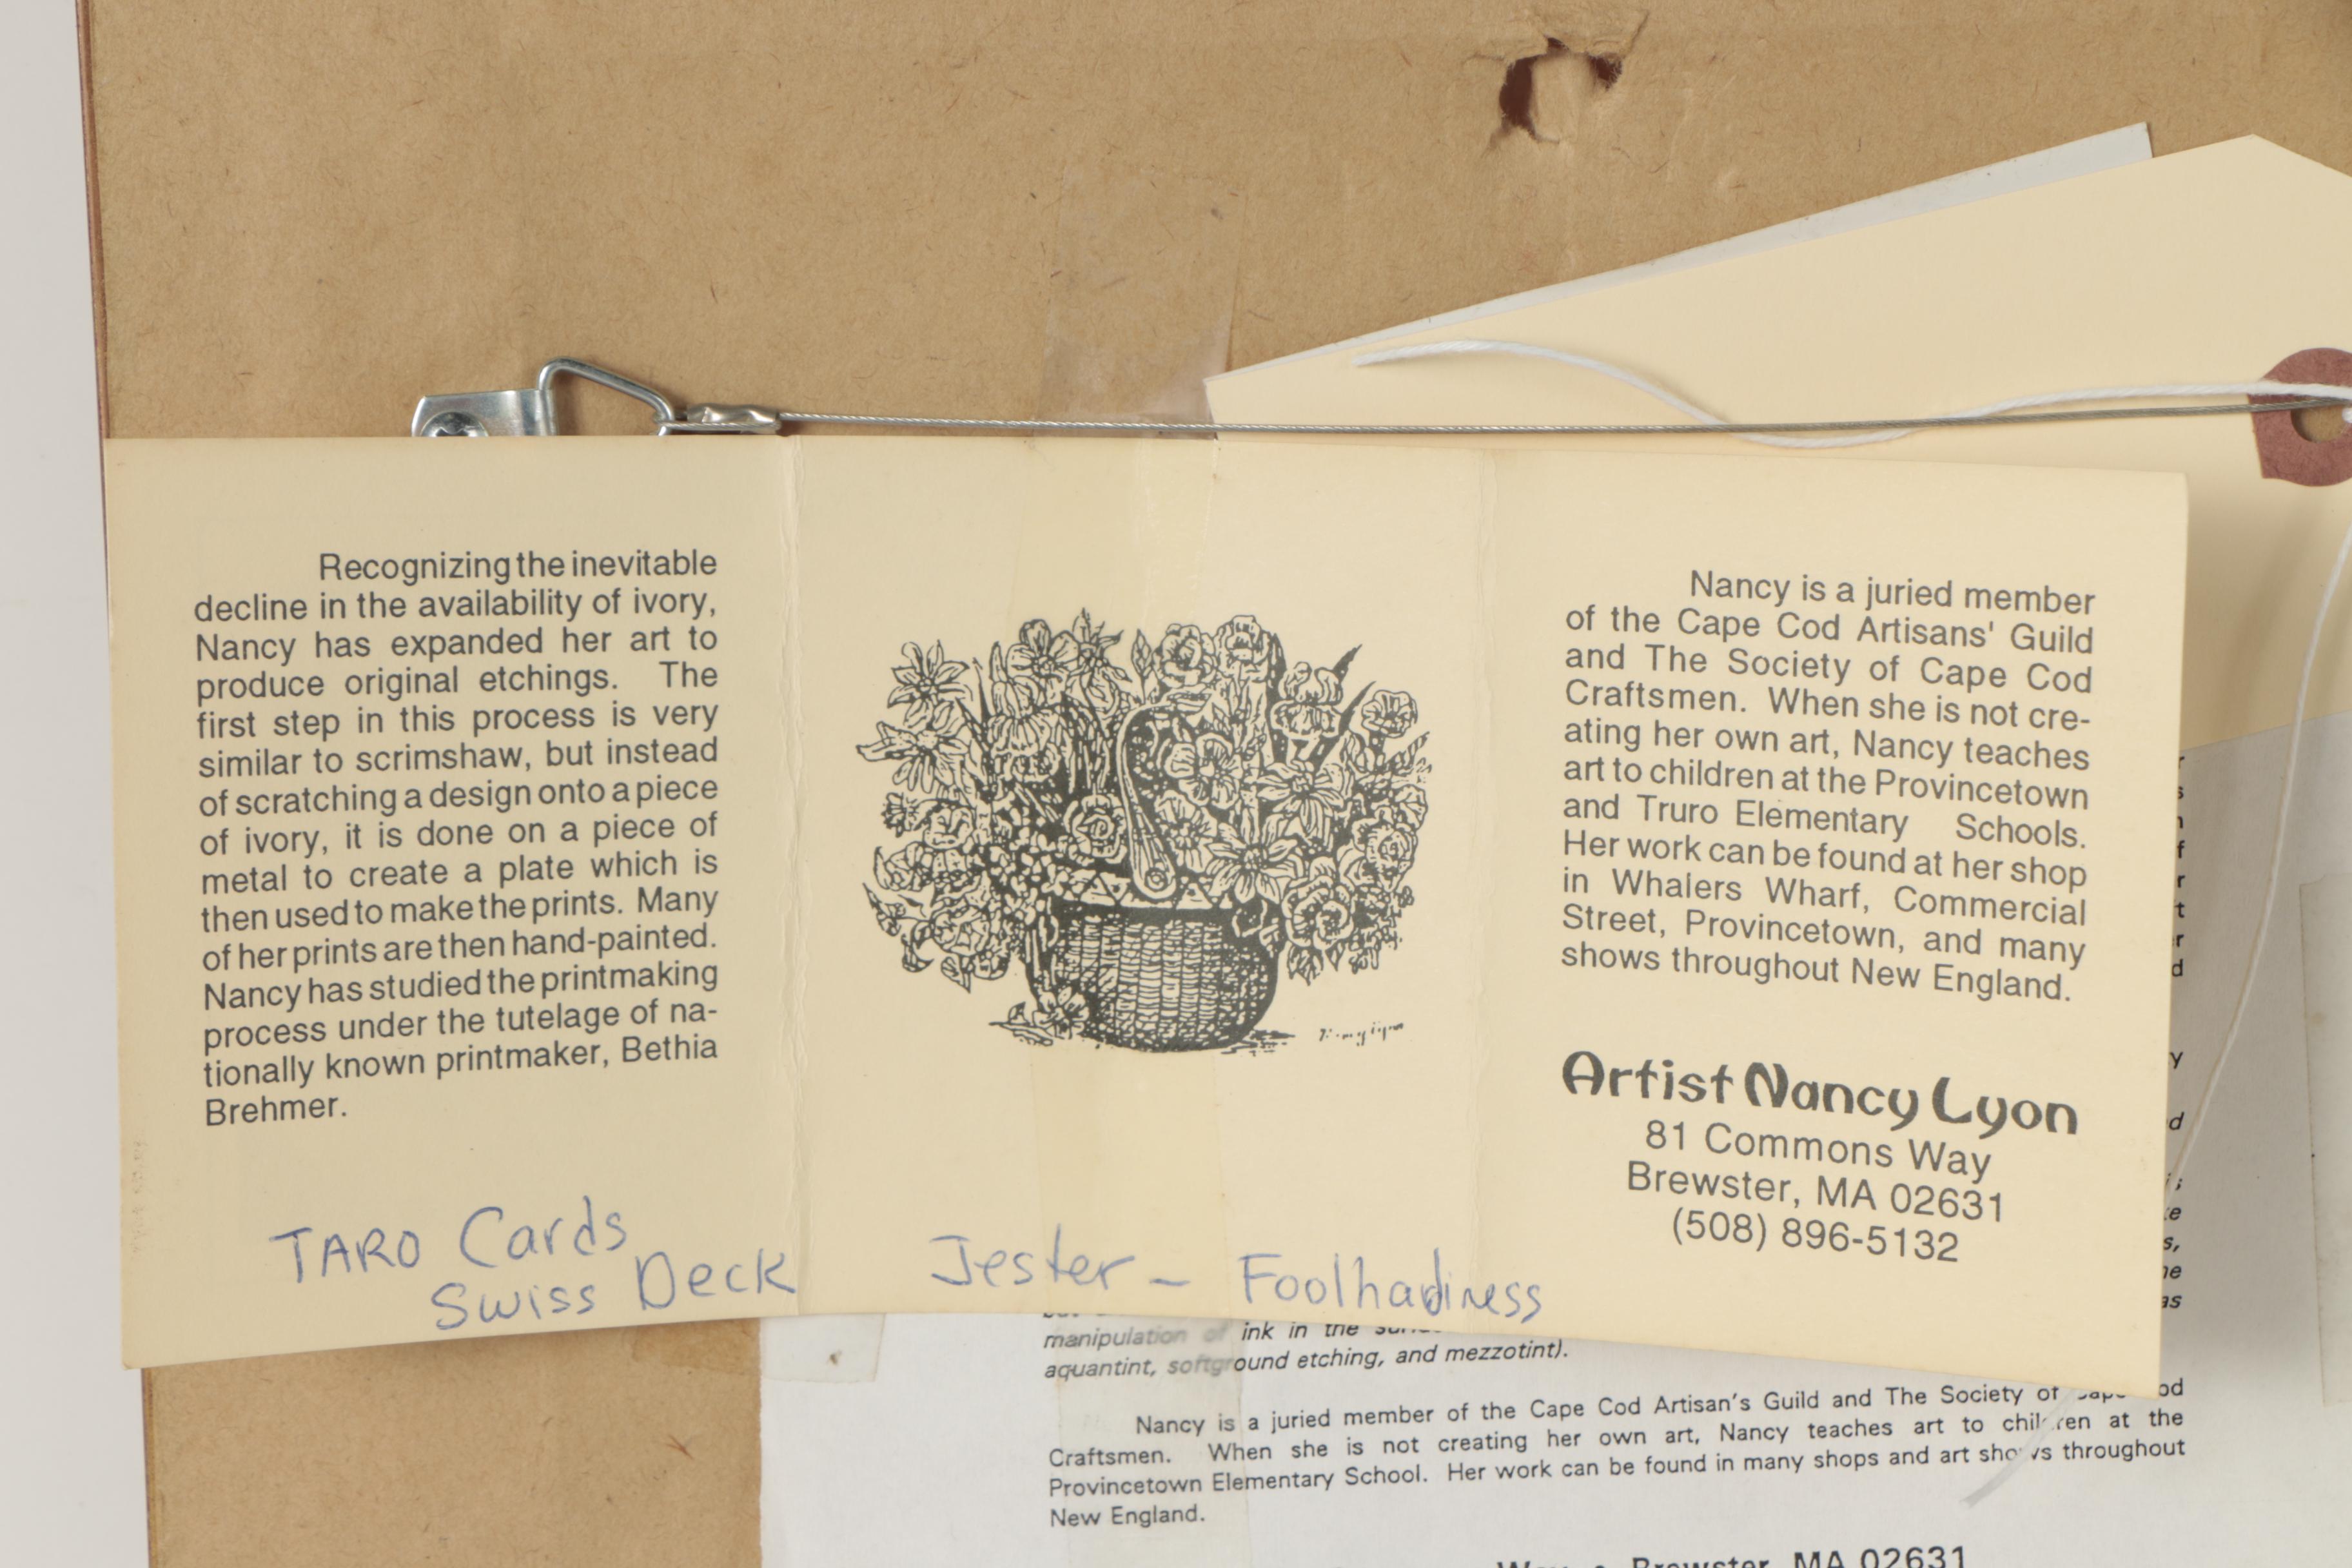 Recognizing the inevitable
decline in the availability of ivory,
Nancy has expanded her art to
produce original etchings. The
first step in this process is very
similar to scrimshaw, but instead
of scratching a design onto a piece
of ivory, it is done on a piece of
metal to create a plate which is
then used to make the prints. Many
of her prints are then hand-painted.
Nancy has studied the printmaking
process under the tutelage of na-
tionally known printmaker, Bethia
Brehmer.
TARO Cards
Swiss Deck
Jester - Foolhadiness
Nancy is a juried member
of the Cape Cod Artisans' Guild
and The Society of Cape Cod
Craftsmen. When she is not cre-
ating her own art, Nancy teaches
art to children at the Provincetown
and Truro Elementary Schools.
Her work can be found at her shop
in Whalers Wharf, Commercial
Street, Provincetown, and many
shows throughout New England.
Artist Nancy Lyon
81 Commons Way
Brewster, MA 02631
(508) 896-5132
manipulation of ink in the
aquantint, softground etching, and mezzotint).
Nancy is a juried member of the Cape Cod Artisan's Guild and The Society of Cape Cod
Craftsmen. When she is not creating her own art, Nancy teaches art to children at the
Provincetown Elementary School. Her work can be found in many shops and art shows throughout
New England.
Way • Brewster, MA 02631